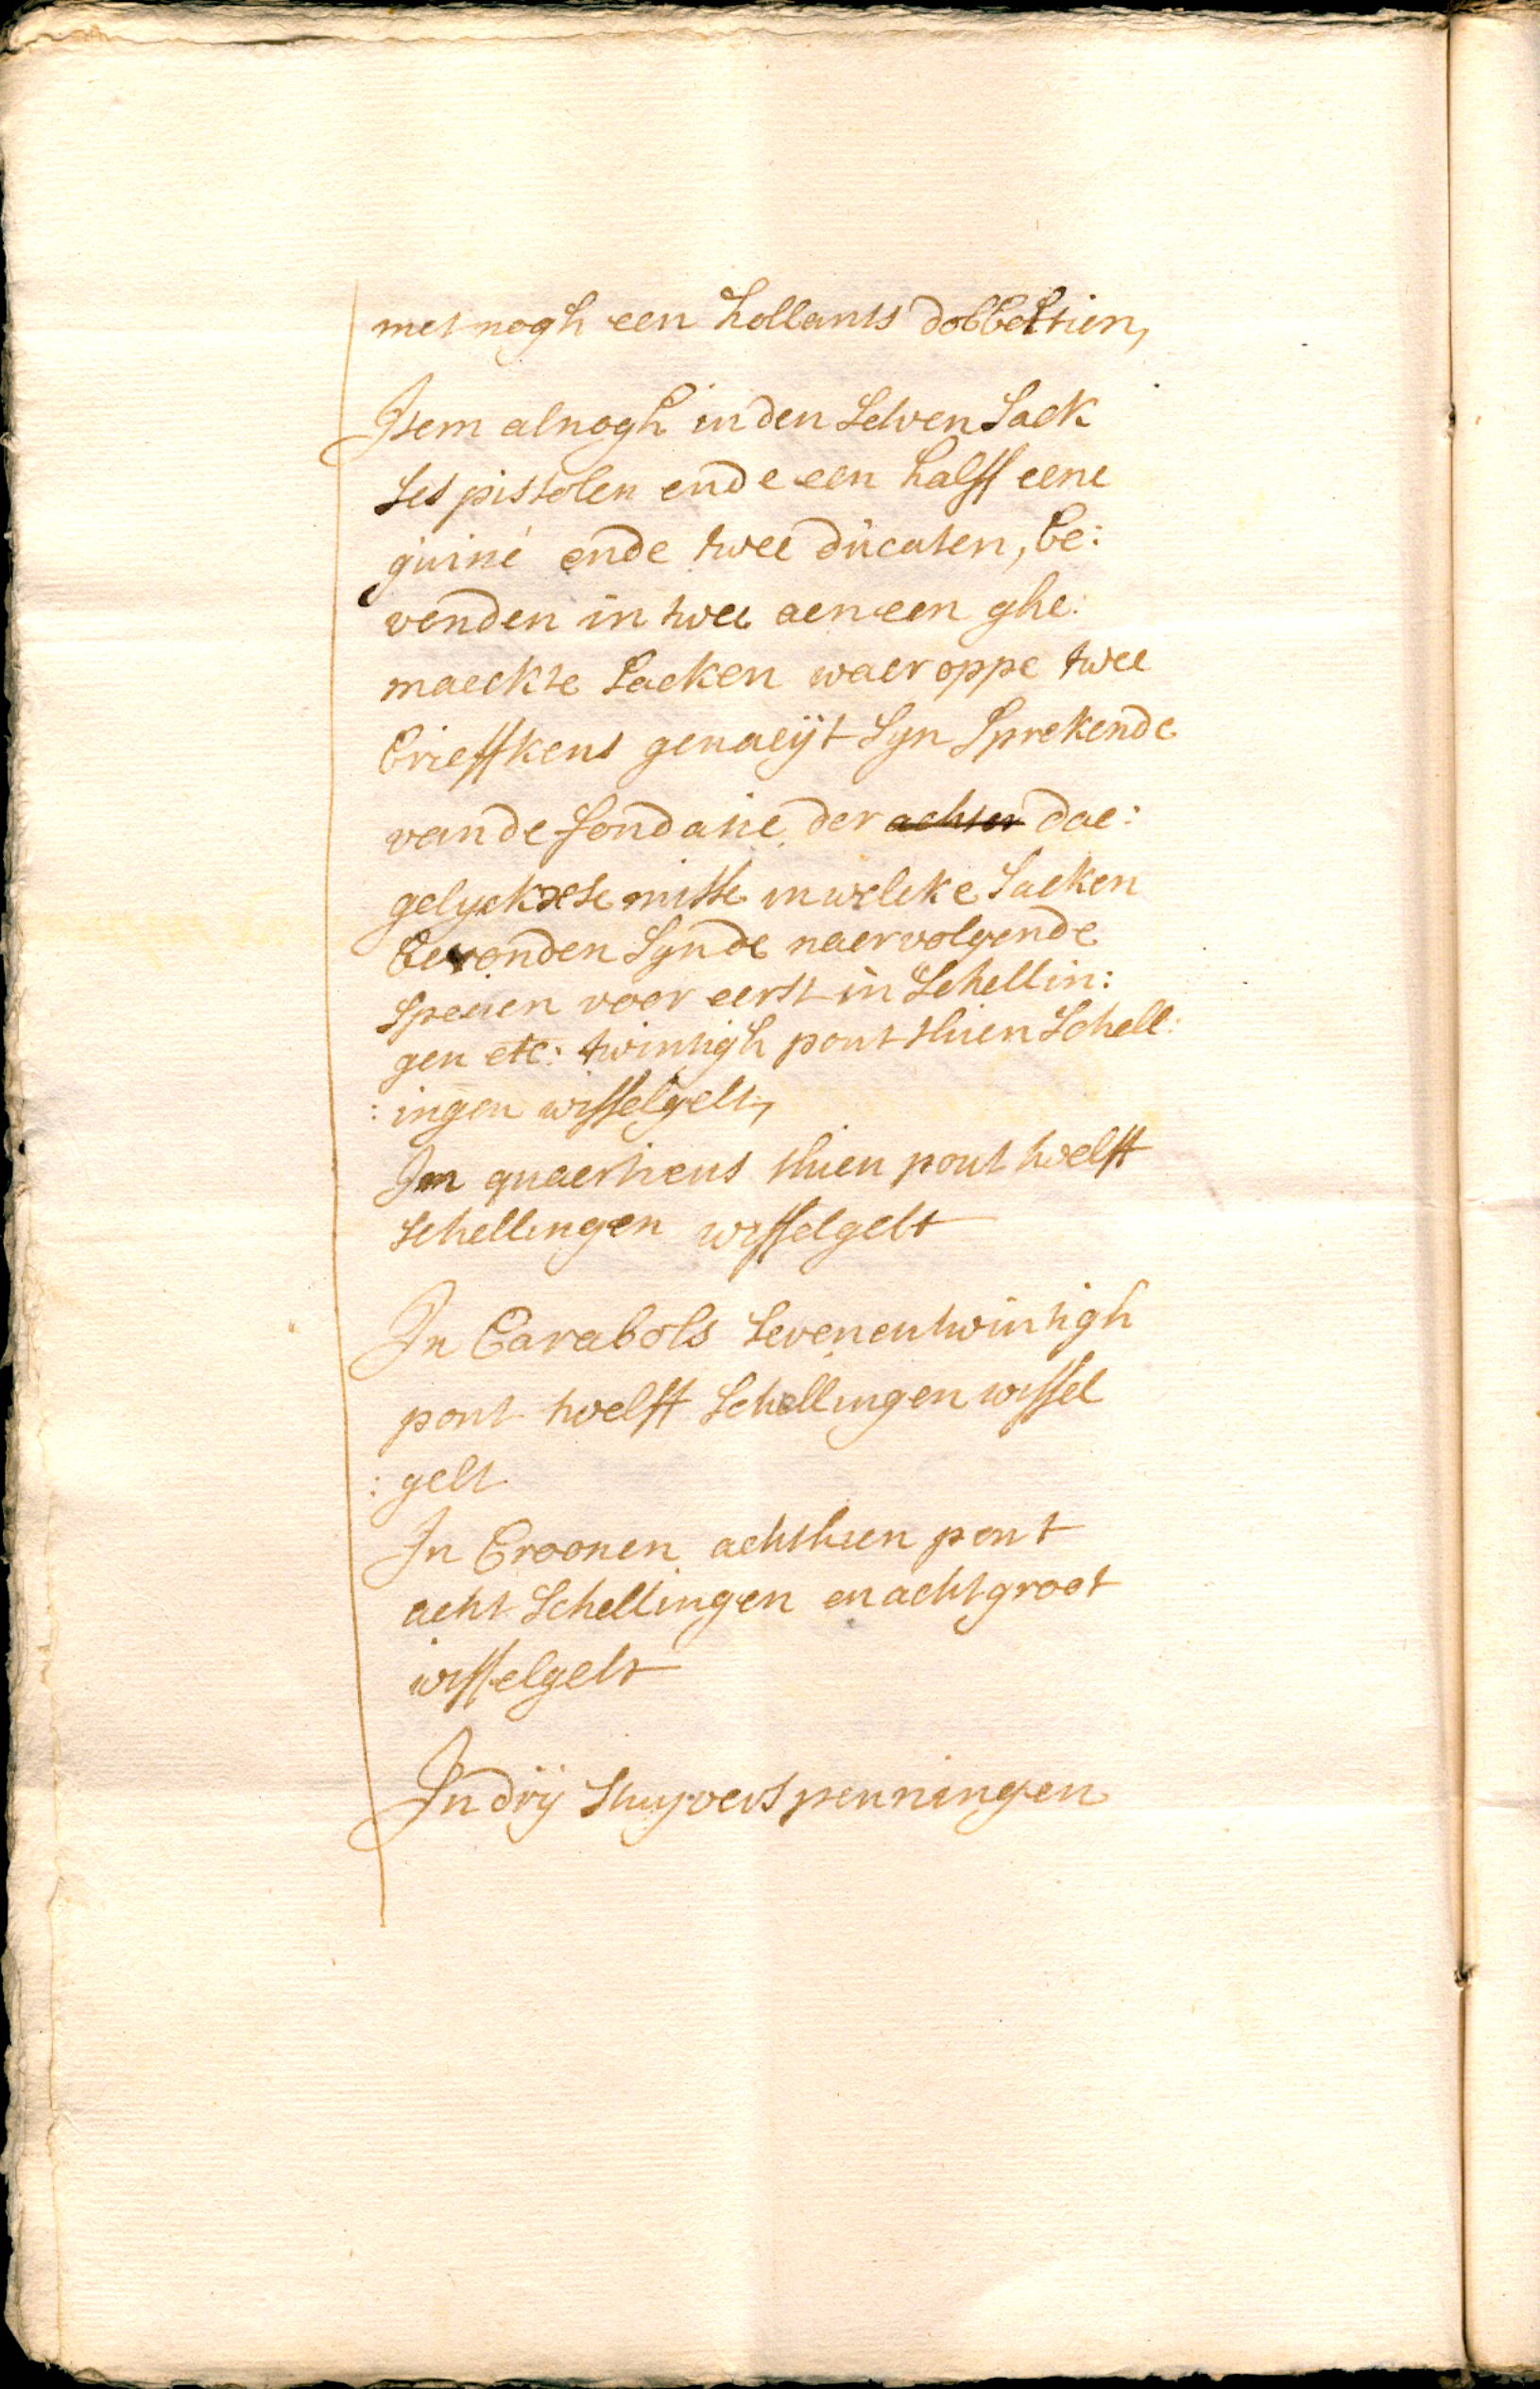 met nogh een hollants dobbeltien,
Item alnogh in den selven sack
ses pistolen ende een halff eene
guiné ende twee ducaten, be:
vonden in twee aen een ghe:
maeckte sacken waer oppe twee
brieffkens genaeÿt syn sprekende
van de fondatie der achter dae:
gelyckxste misse in welcke sacken
bevonden synde naervolgende
specien voor eerst in schellin:
gen etc: twintigh pont thien schell:
: ingen wisselgelt,
In quaertiens thien pont twelff
schellingen wisselgelt
In Carabols sevenentwintigh
pont twelff schellingen wissel
: gelt
In Croonen achthien pont
acht schellingen en acht groot
wisselgelt
In drÿ stuyvers penningen